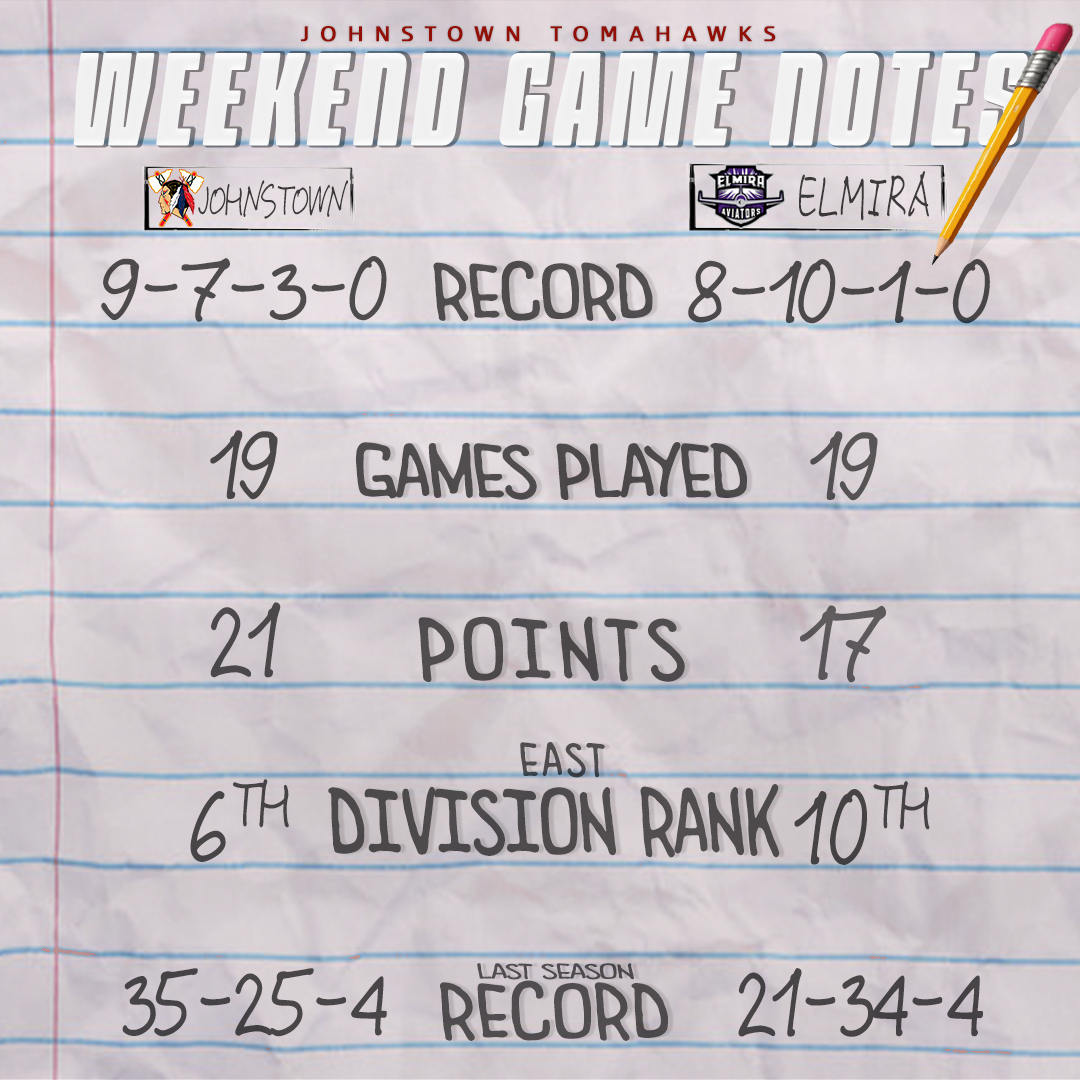 JOHNSTOWN TOMAHAWKS
WEEKEND GAME NOTES
JOHNSTOWN
ELMIRA AVIATORS ELMIRA
9-7-3-0 RECORD 8-10-1-0
19 GAMES PLAYED 19
21 POINTS 17
EAST
6TH DIVISION RANK 10TH
LAST SEASON
35-25-4 RECORD 21-34-4